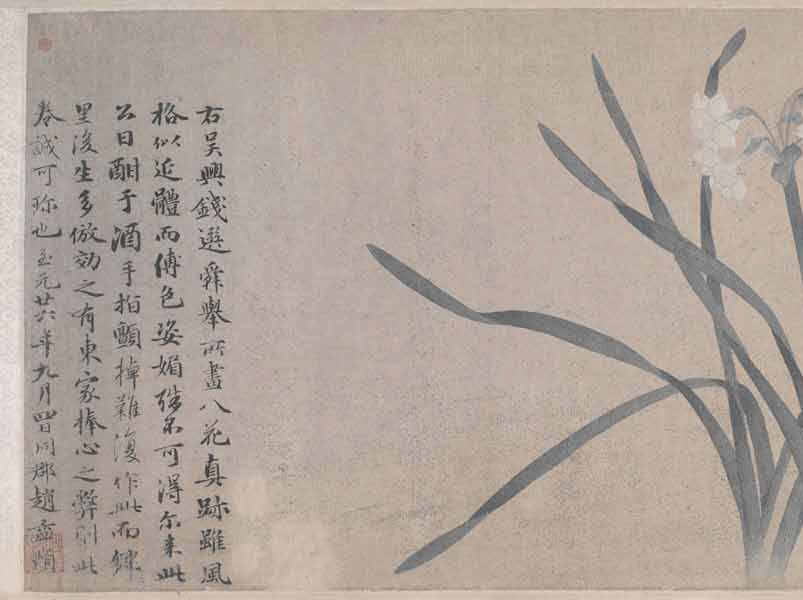 右吳興錢選舜舉所畫八花真跡雖風
格似近體而傅色姿媚殊不可得尔來此
公日酣于酒手指顫掉難復作此而鄉
里後生多倣効之有東家捧心之弊則此
卷誠可珍也至元廿六年九月四日同郡趙孟頫